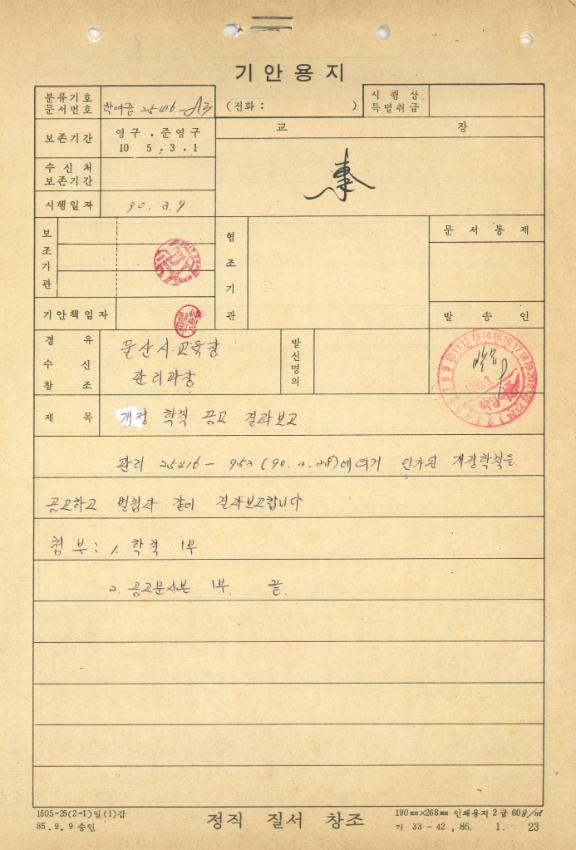 기안용지
분류기호
문서번호
학여중 25416-
(전화 : )
시행상
특별취급
보존기간
영구 . 준영구
10 5 . 3 . 1
교 장
수신처
보존기간
시행일자
90. 3. 9
보조기관
협조기관
문서통제
기안책임자
발송인
경유
수신
참조
울산시교육장
관리과장
발신명의
제목
개정 학칙 공고 결과보고
관리 25416- 953 (90. 2. 28)에 의거 인가된 개정학칙을
공고하고 별첨과 같이 결과보고합니다
첨부 : 1. 학칙 1부
2. 공고문사본 1부. 끝.
1505-25(2-1)일(1)갑
85. 9. 9 승인
정직 질서 창조
190mm×268mm 인쇄용지 2급 60g/㎡
가 33-42, 86. 1. 23